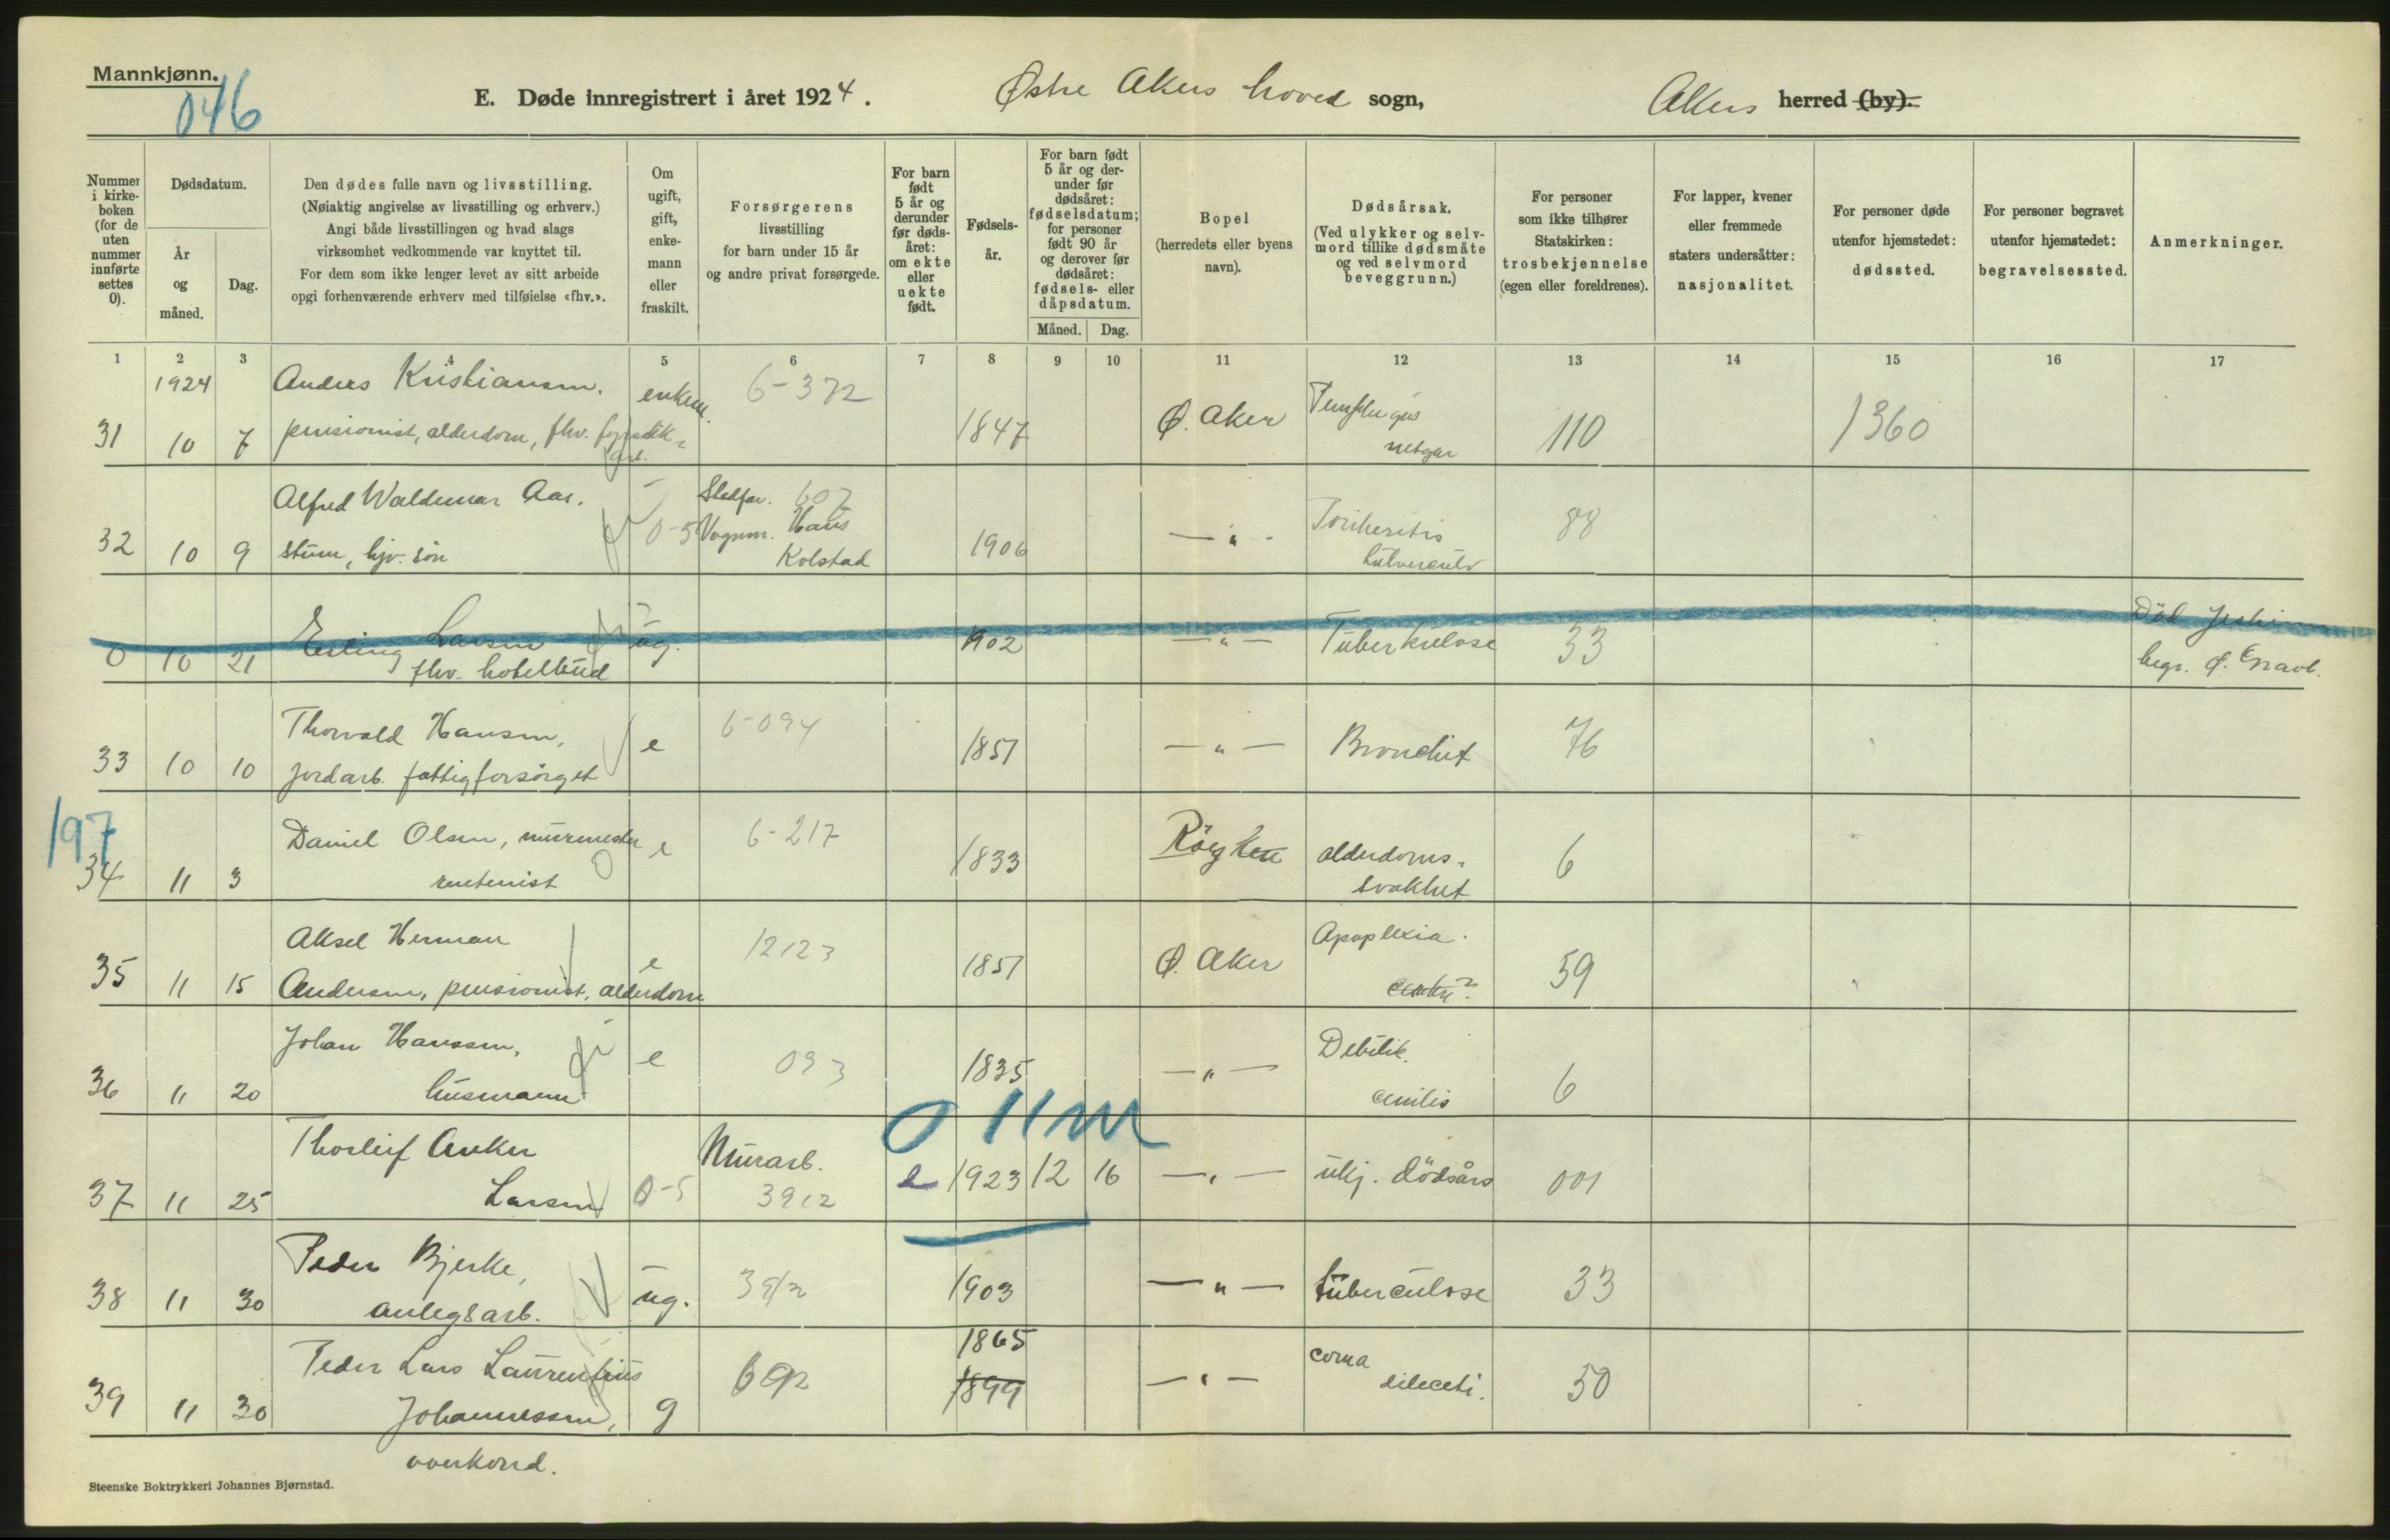 Mannkjønn.
046
E. Døde innregistrert i året 1924.
Østre Akers hoved sogn,
Akers herred (by).
Nummer i kirke-boken (for de uten nummer innførte settes 0).
Dødsdatum.
År og måned.
Dag.
Den dødes fulle navn og livsstilling.
(Nøiaktig angivelse av livsstilling og erhverv.)
Angi både livsstillingen og hvad slags
virksomhet vedkommende var knyttet til.
For dem som ikke lenger levet av sitt arbeide
opgi forhenværende erhverv med tilføielse «fhv.».
Om ugift, gift, enke-mann eller fraskilt.
Forsørgerens livsstilling
for barn under 15 år
og andre privat forsørgede.
For barn født 5 år og derunder før døds-året: om ekte eller uekte født.
Fødsels-år.
For barn født 5 år og der-under før dødsåret: fødselsdatum; for personer født 90 år og derover før dødsåret: fødsels- eller dåpsdatum.
Måned. Dag.
Bopel
(herredets eller byens navn).
Dødsårsak.
(Ved ulykker og selv-mord tillike dødsmåte og ved selvmord beveggrunn.)
For personer som ikke tilhører Statskirken: trosbekjennelse (egen eller foreldrenes).
For lapper, kvener eller fremmede staters undersåtter: nasjonalitet.
For personer døde utenfor hjemstedet: dødssted.
For personer begravet utenfor hjemstedet: begravelsessted.
Anmerkninger.
1 2 3 4 5 6 7 8 9 10 11 12 13 14 15 16 17
1924 Anders Kristiansen. enkem. 6-372
31 10 7 pensionist, alderdom, fhv. 1847 Ø. Aker 110 1360
arb.
Alfred Waldemar Aas. Stedfar. 607
32 10 9 stum, hjv. søn 0-5 Vognm. Hans Kolstad 1906 — " - 88
0 10 21 Erling Larsen ug. 1902 — " — Tuberkulose 33 Död
fhv. hotelbud begr. Ø.
Thorvald Hansen, 6-094
33 10 10 jordarb. fattigforsörget e 1851 — " — Bronchit 76
197
Daniel Olsen, murmester e 6-217
34 11 3 rentenist 1833 Röyken alderdoms-svakhet 6
Aksel Herman 12123 Apoplexia.
35 11 15 Andersen, pensionist, alderdom e 1851 Ø. Aker 59
Johan Hanssen,
36 11 20 husmann e 093 1835 — " — Debilit. 6
0 11 m
Thorleif Anker Murarb.
37 11 25 Larsen 0-5 3912 e 1923 12 16 — " — ukj. dödsårs 001
Peder Bjerke,
38 11 30 anlegsarb. ug. 3912 1903 — " — tuberculose 33
Peder Lars Laurentius 1865 coma
39 11 30 Johannessen, g 692 1899 — " — 50
overkond.
Steenske Boktrykkeri Johannes Bjørnstad.